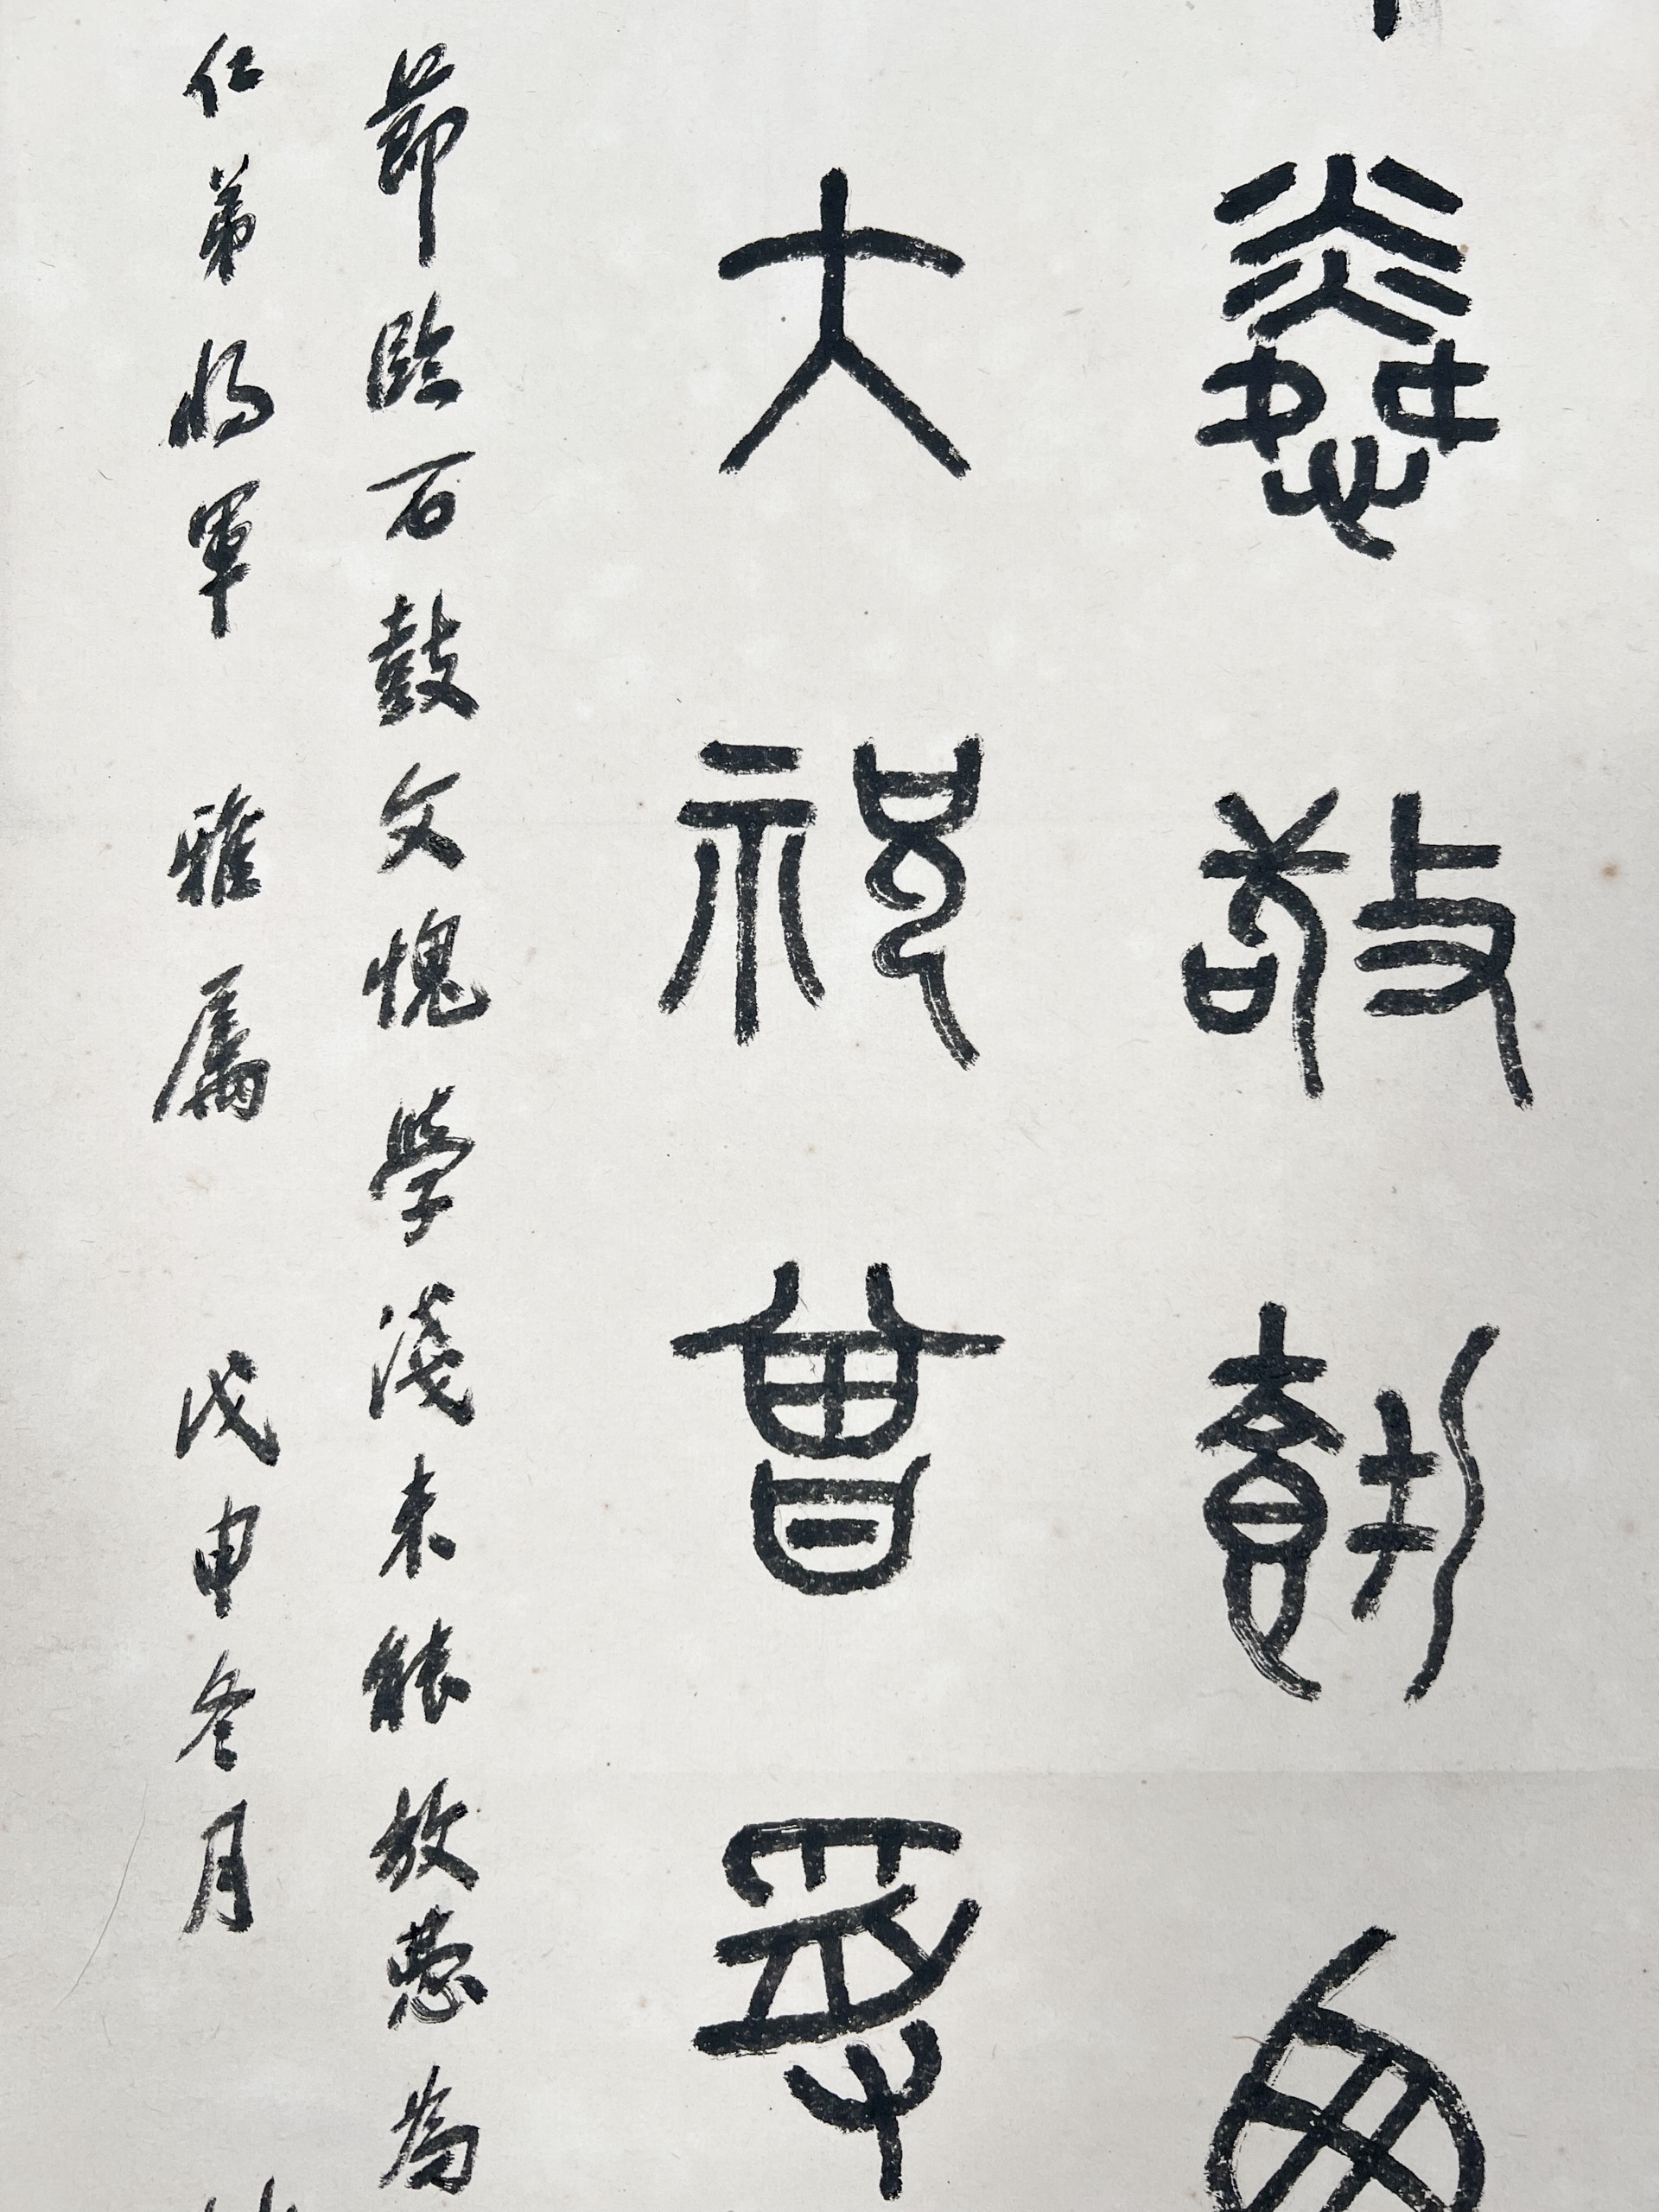 憐敬載西
大祝曾受
節臨石鼓文愧學淺未能放為
仁弟將軍 雅屬 戊申冬月